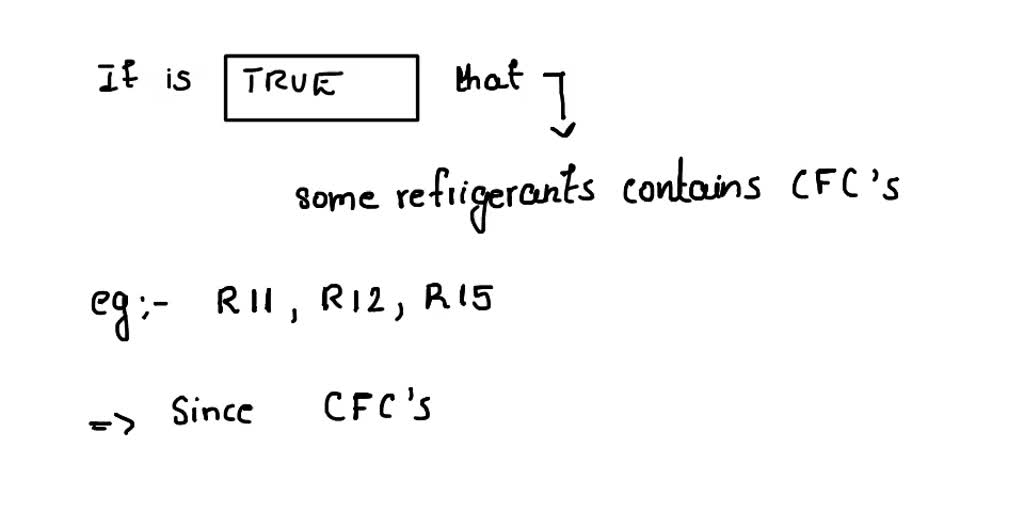 It is TRUE that
some refrigerants contains CFC's
eg:- R11, R12, R15
=> Since CFC's